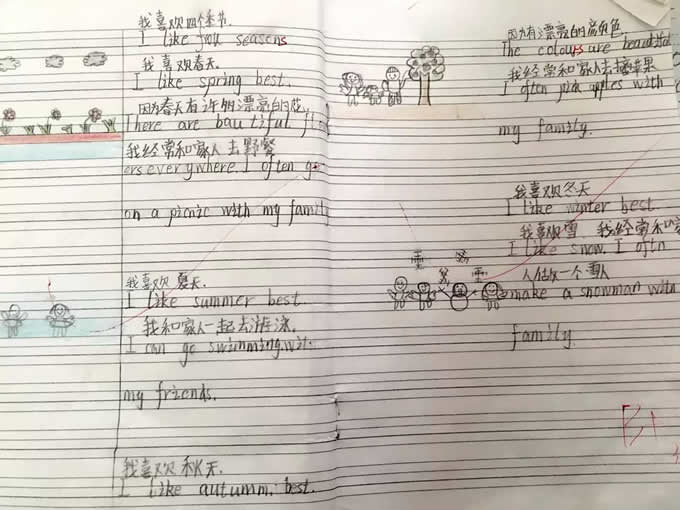 我喜欢四个季节.
I like four seasons
我喜欢春天.
I like spring best.
因为春天有许多漂亮的花,
There are bautiful fl
我经常和家人去野餐
ers everywhere. I often g
on a picnic with my famil
我喜欢夏天.
I like summer best.
我和家人一起去游泳.
I can go swimming.wit
my friends.
我喜欢秋天.
I like autumm. best.
因为有漂亮的颜色
The colours are beautiful
我经常和家人去摘苹果
I often pick apples with
my family.
我喜欢冬天
I like winter best
我喜欢雪 我经常和家
I like snow. I oftn
人做一个雪人
make a snowman with
family.
B1